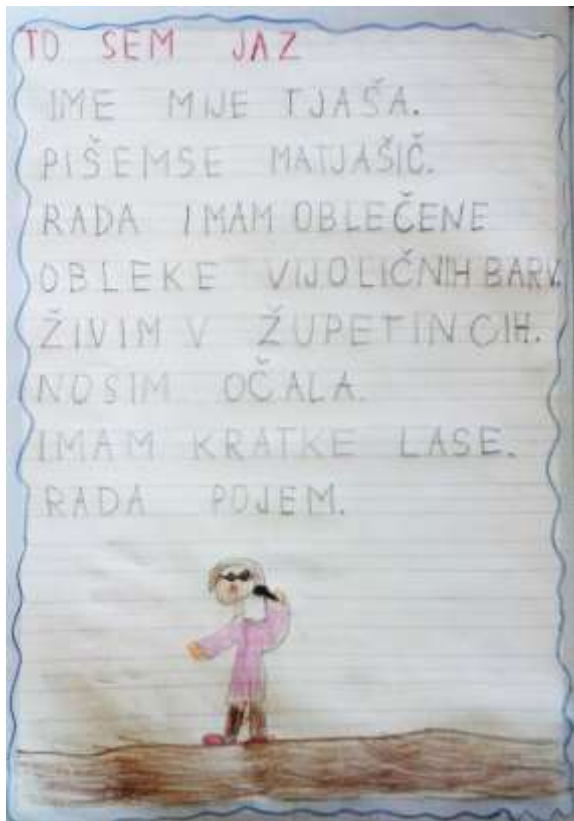 TO SEM JAZ
IME MIJE TJAŠA.
PIŠEMSE MATJAŠIČ.
RADA IMAM OBLEČENE
OBLEKE VIJOLIČNIH BARV.
ŽIVIM V ŽUPETINCIH.
NOSIM OČALA.
IMAM KRATKE LASE.
RADA POJEM.